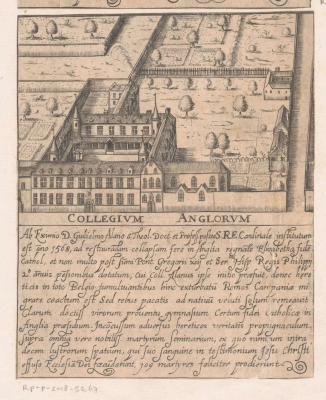 COLLEGIVM ANGLORVM
Ab Eximio D. Gulielmo Alano S. Theol. Doct. et Professore S. R. E. Cardinale institutum
est año 1568, ad restaurandam collapsam fere in Anglia regnante Elisabetha fidē
Cathol. et non multo post sum. Pont. Gregorii XIII et Ser. Hisp. Regis Philippi
2.i annuis pensionibus dotatum, cui Coll. Alanus ipse initio praefuit, donec haere
ticis in toto Belgio tumultuantibus hinc exturbati Remos Campaniae mi
grare coactum est Sed rebus pacatis ad nativū veluti solum remeavit
Clarum doctis virorum proventu gymnasium Certum fidei Catholicae in
Anglia praesidium Inconcussum adversus haereticos veritatis propugnaculum
supra omnia vere nobilis martyrum seminarium, ex quo nimirum intra
decem lustrorum spatium, qui suo sanguine in testimonium Jesu Christi
effuso Ecclesiā Dei foecundarint, 109 martyres feliciter prodierunt
RP-P-2018-5267